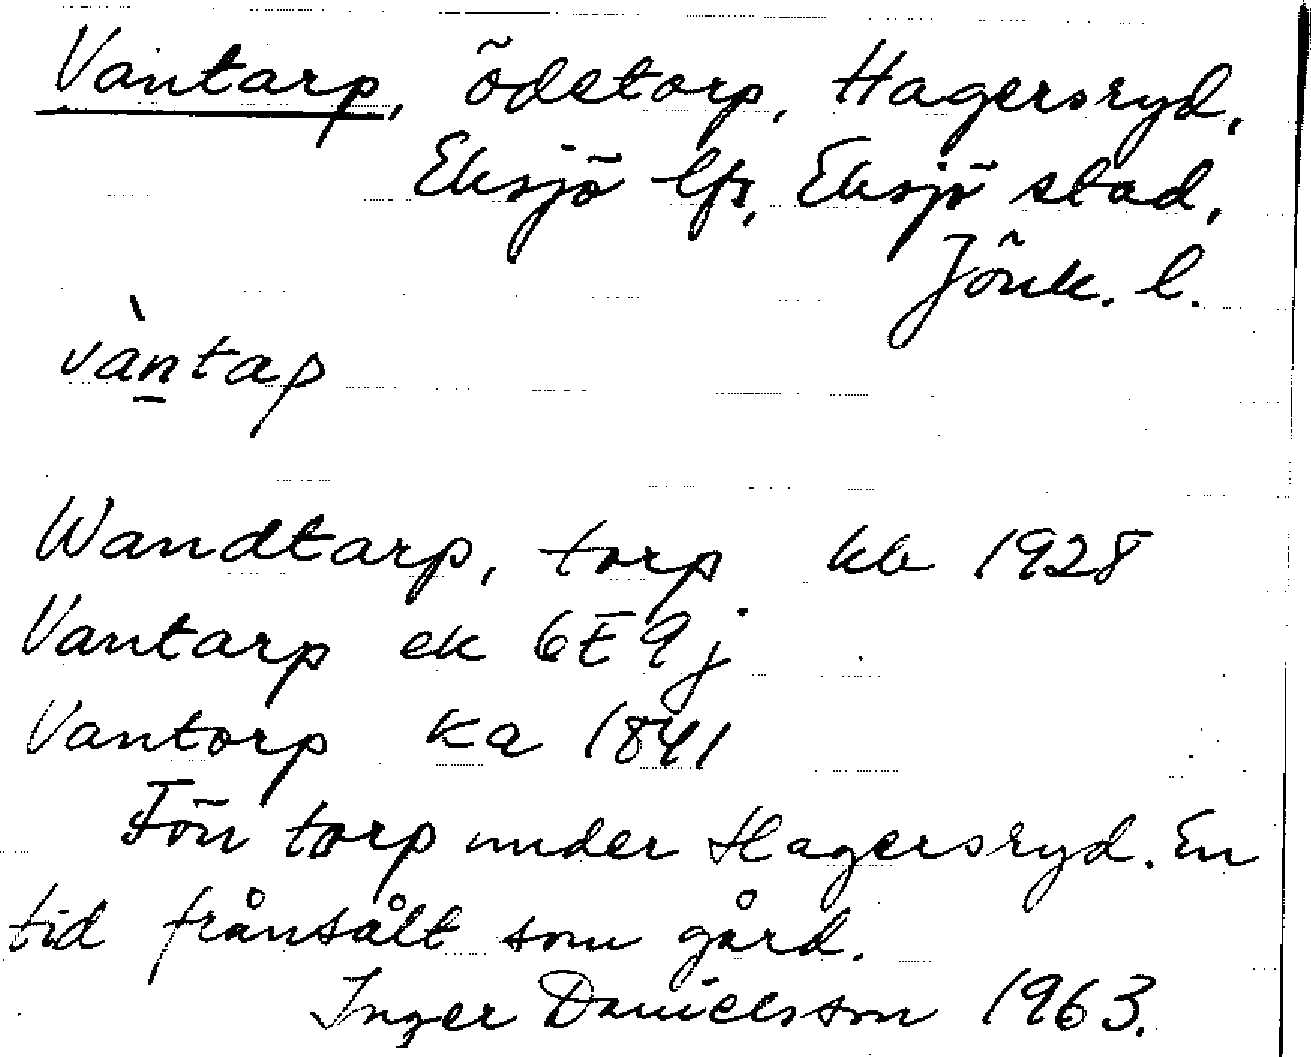 Vantarp, ödetorp, Hagersryd,
Eksjö lfs, Eksjö stad,
Jönk. l.
vàn̠tap
Wandtarp, torp kb 1928
Vantarp ek 6E9j
Vantorp ka 1841
Förr torp under Hagersryd. En
tid frånsålt som gård.
Inger Danielsson 1963.